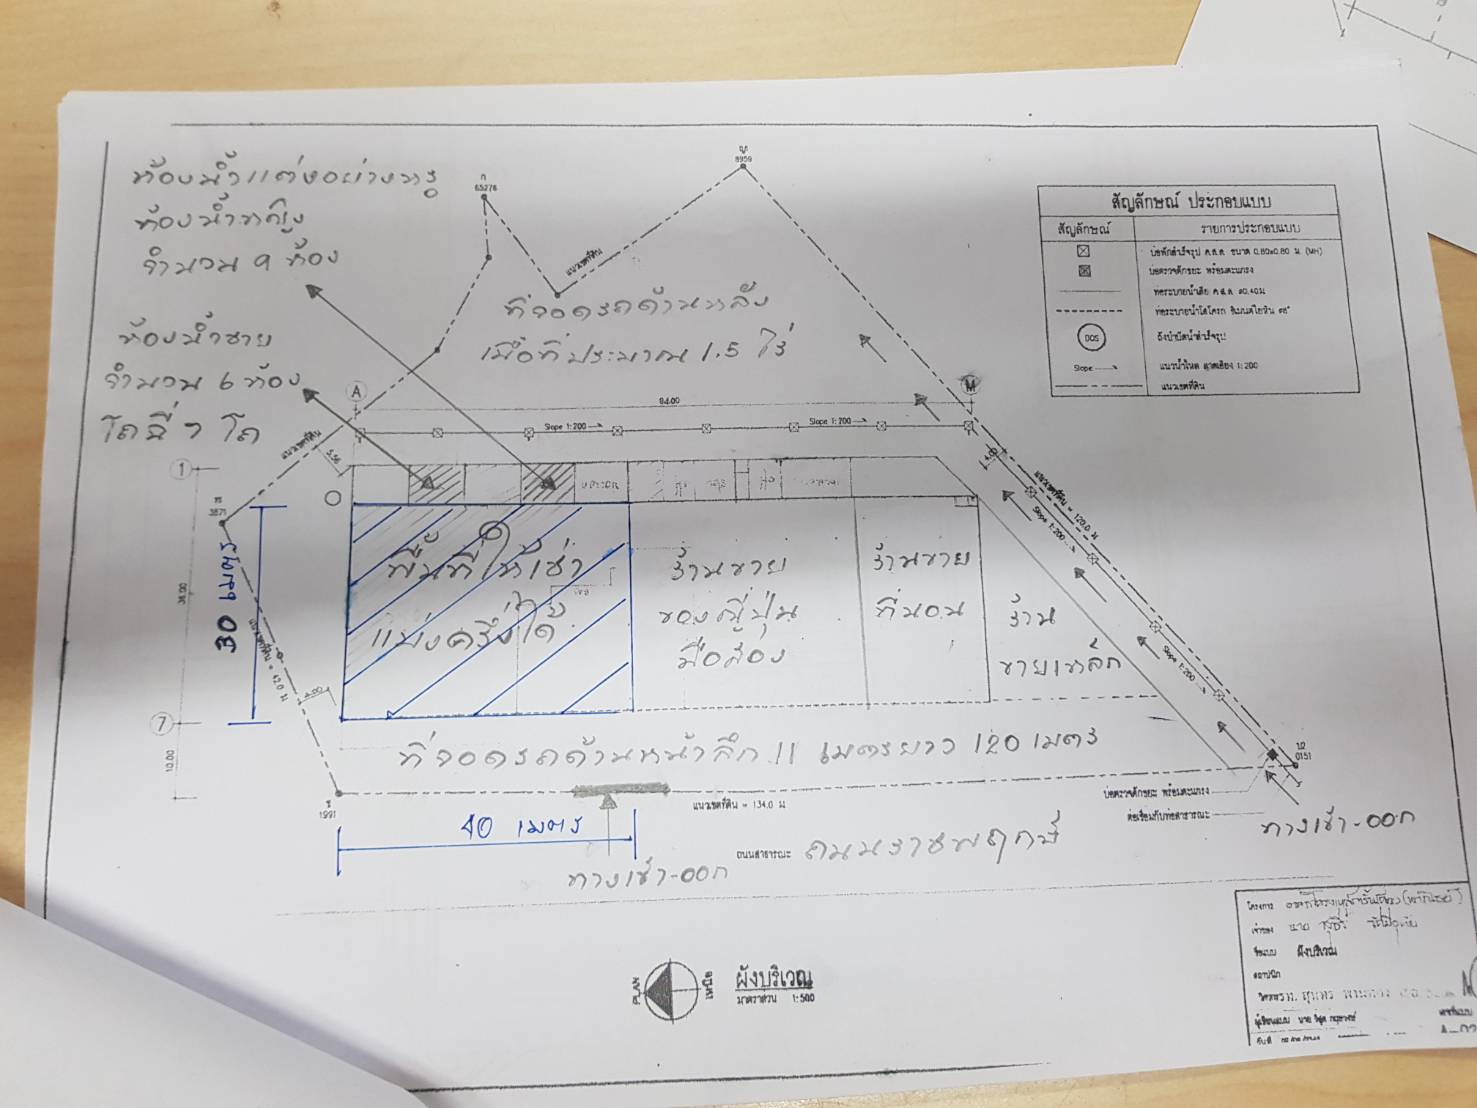 ห้องน้ำแต่งอย่างหรู
ห้องน้ำหญิง
จำนวน 9 ห้อง
ห้องน้ำชาย
จำนวน 6 ห้อง
โถฉี่ 7 โถ
ก
65278
ญ
8959
แนวเขตที่ดิน
ที่จอดรถด้านหลัง
เนื้อที่ประมาณ 1.5 ไร่
A
M
84.00
Slope 1:200
Slope 1:200
แนวเขตที่ดิน
5.56
1
3871
30 เมตร
36.00
7
10.00
แนวเขตที่ดิน = 42.0 ม
4.00
พื้นที่ให้เช่า
แบ่งครึ่งได้
ร้านขาย
ของญี่ปุ่น
มือสอง
ร้านขาย
ที่นอน
ร้าน
ขายเหล็ก
4.00
แนวเขตที่ดิน = 120.0 ม
Slope 1:200
Slope 1:200
Slope 1:200
ที่จอดรถด้านหน้าลึก 11 เมตรยาว 120 เมตร
1991
แนวเขตที่ดิน = 134.0 ม
40 เมตร
ทางเข้า-ออก
ถนนสาธารณะ ถนนราชพฤกษ์
บ่อตรวจดักขยะ พร้อมตะแกรง
ต่อเชื่อมกับท่อสาธารณะ
0151
ทางเข้า-ออก
สัญลักษณ์ ประกอบแบบ
สัญลักษณ์ รายการประกอบแบบ
บ่อพักสำเร็จรูป ค.ส.ล. ขนาด 0.80x0.80 ม. (MH)
บ่อตรวจดักขยะ พร้อมตะแกรง
ท่อระบายน้ำเสีย ค.ส.ล. ø0.40ม
DOS ถังบำบัดน้ำสำเร็จรูป
Slope แนวน้ำไหล ลาดเอียง 1:200
แนวเขตที่ดิน
PLAN
เหนือ
ผังบริเวณ
มาตราส่วน 1:500
โครงการ
เจ้าของ นาย
ชื่อแบบ ผังบริเวณ
สถาปนิก
ผู้เขียนแบบ นาย
วันที่